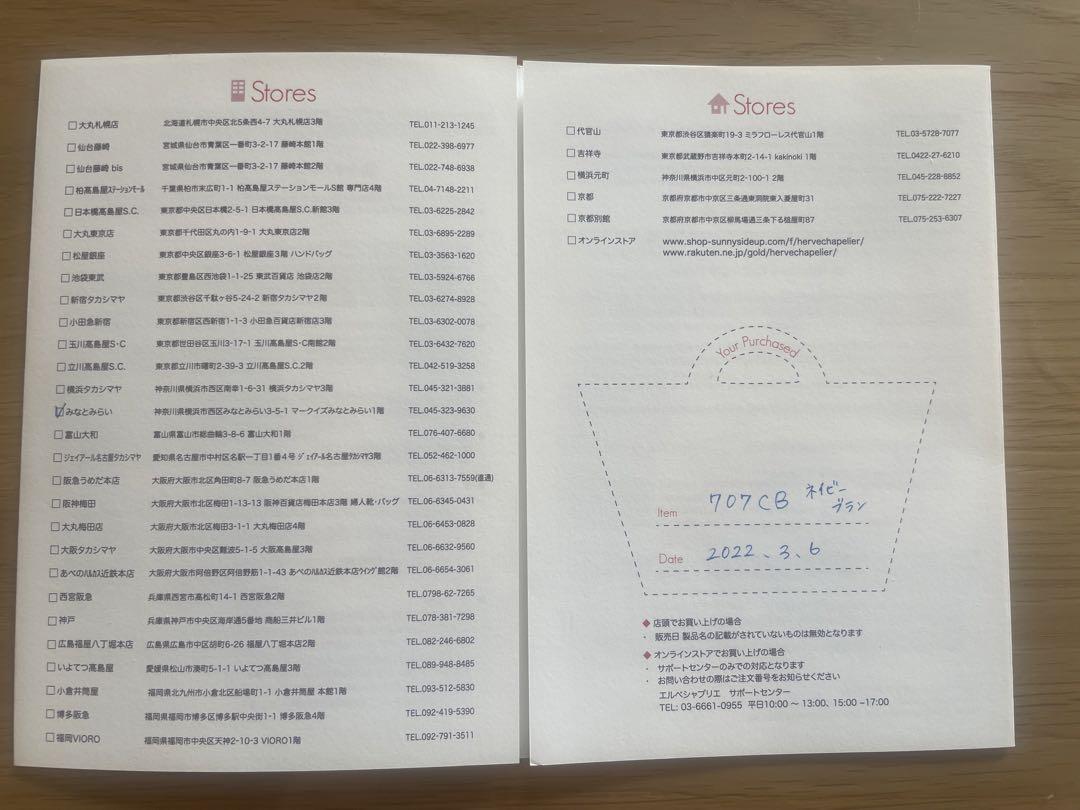 Stores
□大丸札幌店 北海道札幌市中央区北5条西4-7 大丸札幌店3階 TEL.011-213-1245
□仙台藤崎 宮城県仙台市青葉区一番町3-2-17 藤崎本館1階 TEL.022-398-6977
□仙台藤崎 bis 宮城県仙台市青葉区一番町3-2-17 藤崎本館2階 TEL.022-748-6938
□柏高島屋ステーションモール 千葉県柏市末広町1-1 柏高島屋ステーションモールS館 専門店4階 TEL.04-7148-2211
□日本橋高島屋S.C. 東京都中央区日本橋2-5-1 日本橋高島屋S.C.新館3階 TEL.03-6225-2842
□大丸東京店 東京都千代田区丸の内1-9-1 大丸東京店2階 TEL.03-6895-2289
□松屋銀座 東京都中央区銀座3-6-1 松屋銀座3階 ハンドバッグ TEL.03-3563-1620
□池袋東武 東京都豊島区西池袋1-1-25 東武百貨店 池袋店2階 TEL.03-5924-6766
□新宿タカシマヤ 東京都渋谷区千駄ヶ谷5-24-2 新宿タカシマヤ2階 TEL.03-6274-8928
□小田急新宿 東京都新宿区西新宿1-1-3 小田急百貨店新宿店3階 TEL.03-6302-0078
□玉川高島屋S・C 東京都世田谷区玉川3-17-1 玉川高島屋S・C南館2階 TEL.03-6432-7620
□立川高島屋S.C. 東京都立川市曙町2-39-3 立川高島屋S.C.2階 TEL.042-519-3258
□横浜タカシマヤ 神奈川県横浜市西区南幸1-6-31 横浜タカシマヤ3階 TEL.045-321-3881
☑みなとみらい 神奈川県横浜市西区みなとみらい3-5-1 マークイズみなとみらい1階 TEL.045-323-9630
□富山大和 富山県富山市総曲輪3-8-6 富山大和1階 TEL.076-407-6680
□ジェイアール名古屋タカシマヤ 愛知県名古屋市中村区名駅一丁目1番4号 ジェイアール名古屋タカシマヤ3階 TEL.052-462-1000
□阪急うめだ本店 大阪府大阪市北区角田町8-7 阪急うめだ本店1階 TEL.06-6313-7559(直通)
□阪神梅田 大阪府大阪市北区梅田1-13-13 阪神百貨店梅田本店3階 婦人靴・バッグ TEL.06-6345-0431
□大丸梅田店 大阪府大阪市北区梅田3-1-1 大丸梅田店4階 TEL.06-6453-0828
□大阪タカシマヤ 大阪府大阪市中央区難波5-1-5 大阪高島屋3階 TEL.06-6632-9560
□あべのハルカス近鉄本店 大阪府大阪市阿倍野区阿倍野筋1-1-43 あべのハルカス近鉄本店ウイング館2階 TEL.06-6654-3061
□西宮阪急 兵庫県西宮市高松町14-1 西宮阪急2階 TEL.0798-62-7265
□神戸 兵庫県神戸市中央区海岸通5番地 商船三井ビル1階 TEL.078-381-7298
□広島福屋八丁堀本店 広島県広島市中区胡町6-26 福屋八丁堀本店2階 TEL.082-246-6802
□いよてつ高島屋 愛媛県松山市湊町5-1-1 いよてつ高島屋3階 TEL.089-948-8485
□小倉井筒屋 福岡県北九州市小倉北区船場町1-1 小倉井筒屋 本館1階 TEL.093-512-5830
□博多阪急 福岡県福岡市博多区博多駅中央街1-1 博多阪急4階 TEL.092-419-5390
□福岡VIORO 福岡県福岡市中央区天神2-10-3 VIORO1階 TEL.092-791-3511
Stores
□代官山 東京都渋谷区猿楽町19-3 ミラフローレス代官山1階 TEL.03-5728-7077
□吉祥寺 東京都武蔵野市吉祥寺本町2-14-1 kakinoki 1階 TEL.0422-27-6210
□横浜元町 神奈川県横浜市中区元町2-100-1 2階 TEL.045-228-8852
□京都 京都府京都市中京区三条通東洞院東入菱屋町31 TEL.075-222-7227
□京都別館 京都府京都市中京区柳馬場通三条下る槌屋町87 TEL.075-253-6307
□オンラインストア www.shop-sunnysideup.com/f/hervechapelier/
www.rakuten.ne.jp/gold/hervechapelier/
Your Purchased
Item 707CB ネイビー
ブラン
Date 2022、3、6
◆店頭でお買い上げの場合
・ 販売日 製品名の記載がされていないものは無効となります
◆オンラインストアでお買い上げの場合
・ サポートセンターのみでの対応となります
・ お問い合わせの際はご注文番号をお知らせください
エルベシャプリエ サポートセンター
TEL: 03-6661-0955 平日10:00 〜 13:00、15:00 −17:00